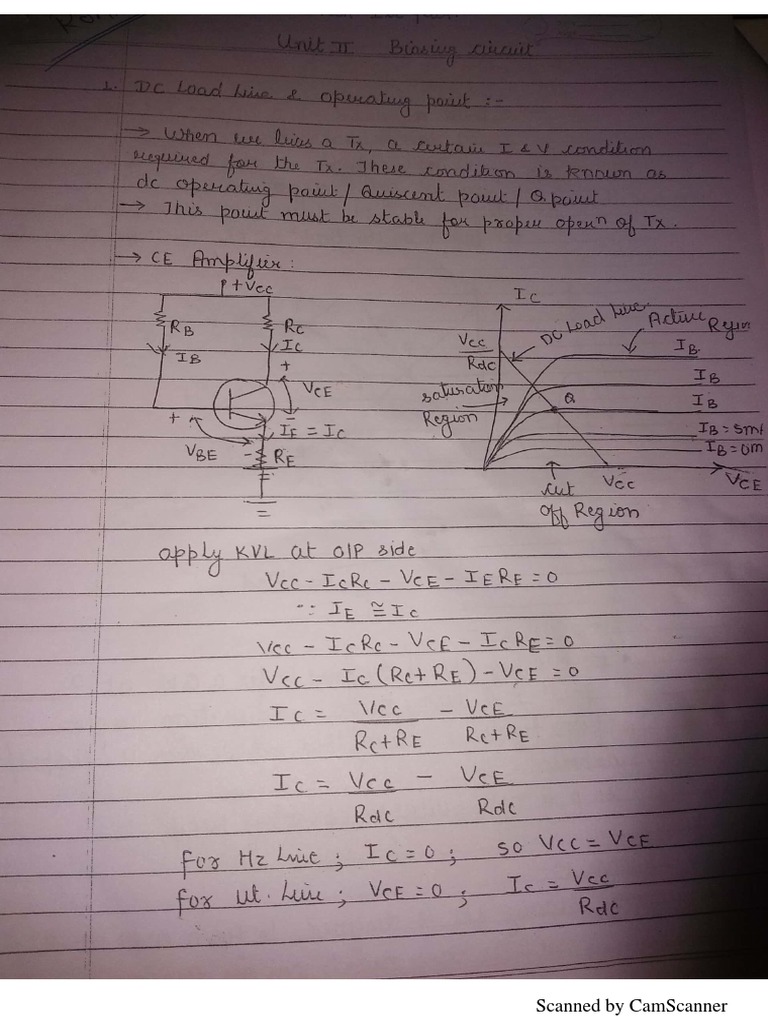 Unit II Biasing circuit
1. DC Load Line & operating point :-
→ When we bias a Tx, a certain I & V condition
required for the Tx. These condition is known as
dc operating point / Quiscent point / Q.point
→ This point must be stable for proper open of Tx.
→ CE Amplifier:
+Vcc
RB
RC
IB
IC
+
VCE
-
+
VBE
-
IE = IC
RE
IC
DC Load Line
Active
Region
Vcc
Rdc
IB
IB
IB
Q
saturation
Region
IB = 0m
VCC
VCE
cut
off Region
apply KVL at O/P side
Vcc - ICRC - VCE - IERE = 0
∵ IE ≅ IC
Vcc - ICRC - VCE - ICRE = 0
Vcc - IC (RC + RE) - VCE = 0
IC = Vcc - VCE
RC+RE RC+RE
IC = Vcc - VCE
Rdc Rdc
for Hz Line ; IC = 0 ; so VCC = VCE
for Vt. Line ; VCE = 0 ; IC = Vcc
Rdc
Scanned by CamScanner